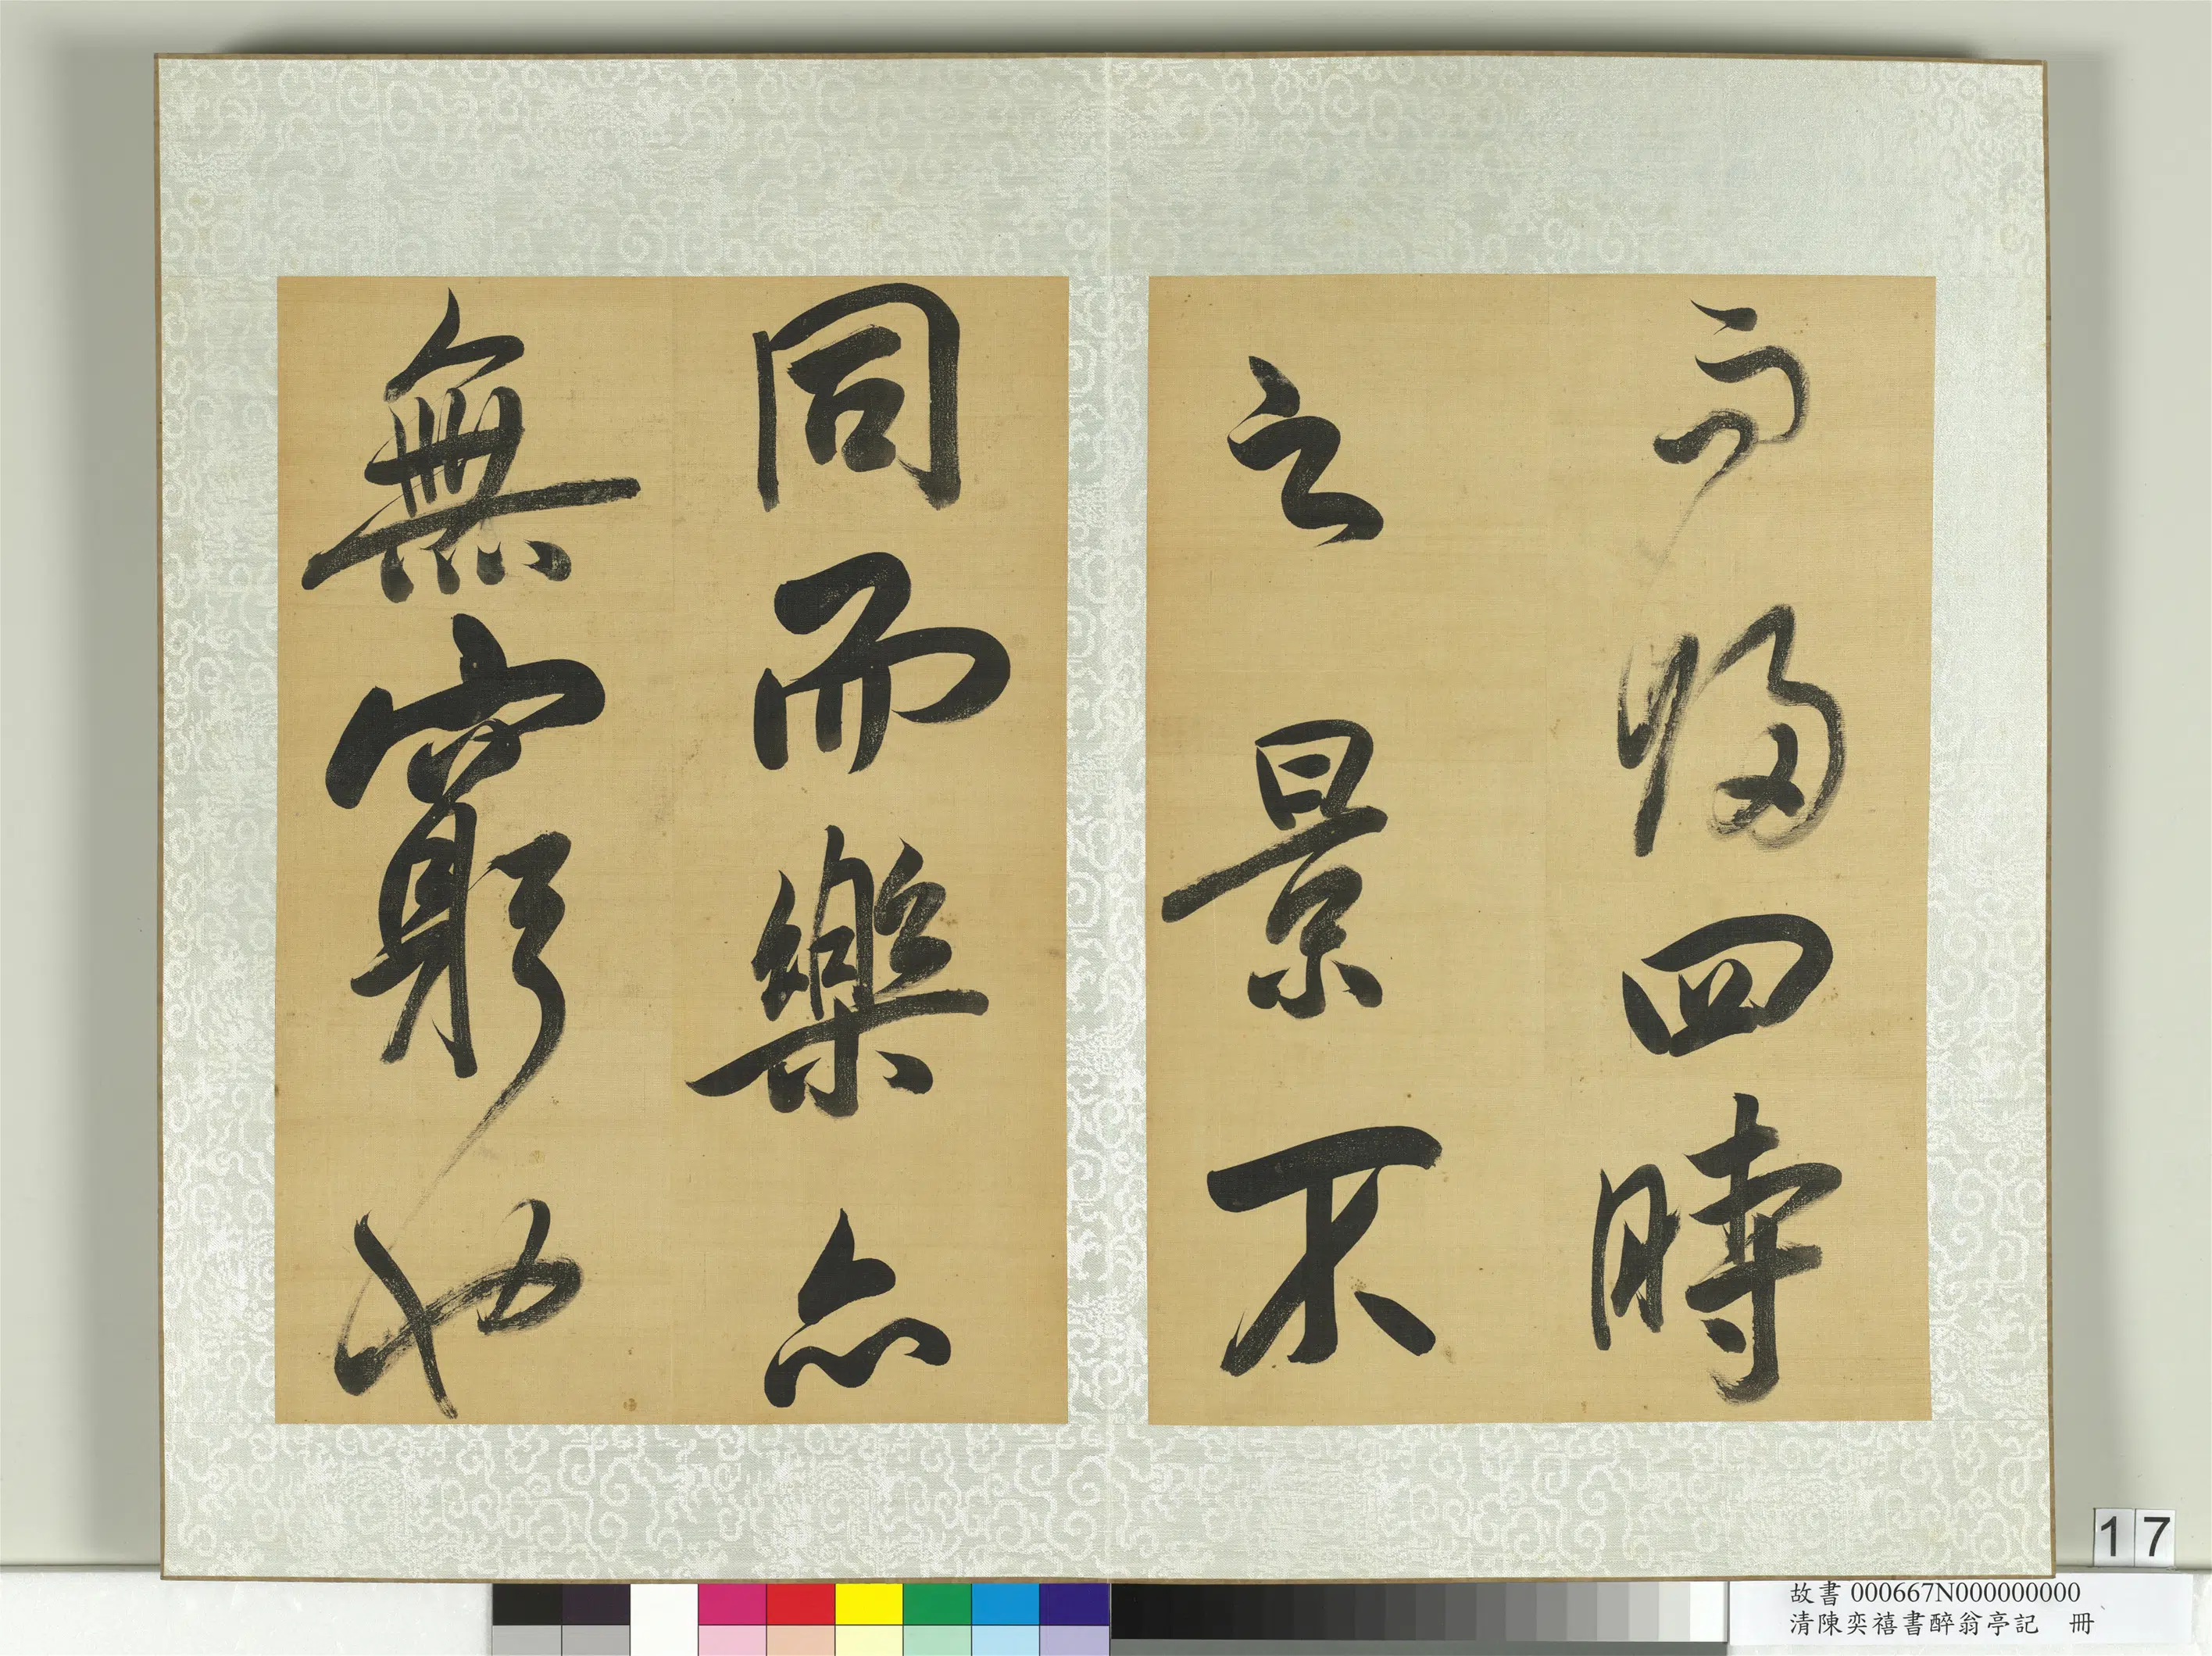 而歸四時
之景不
同而樂亦
無窮也
17
故書 000667N000000000
清陳奕禧書醉翁亭記 冊